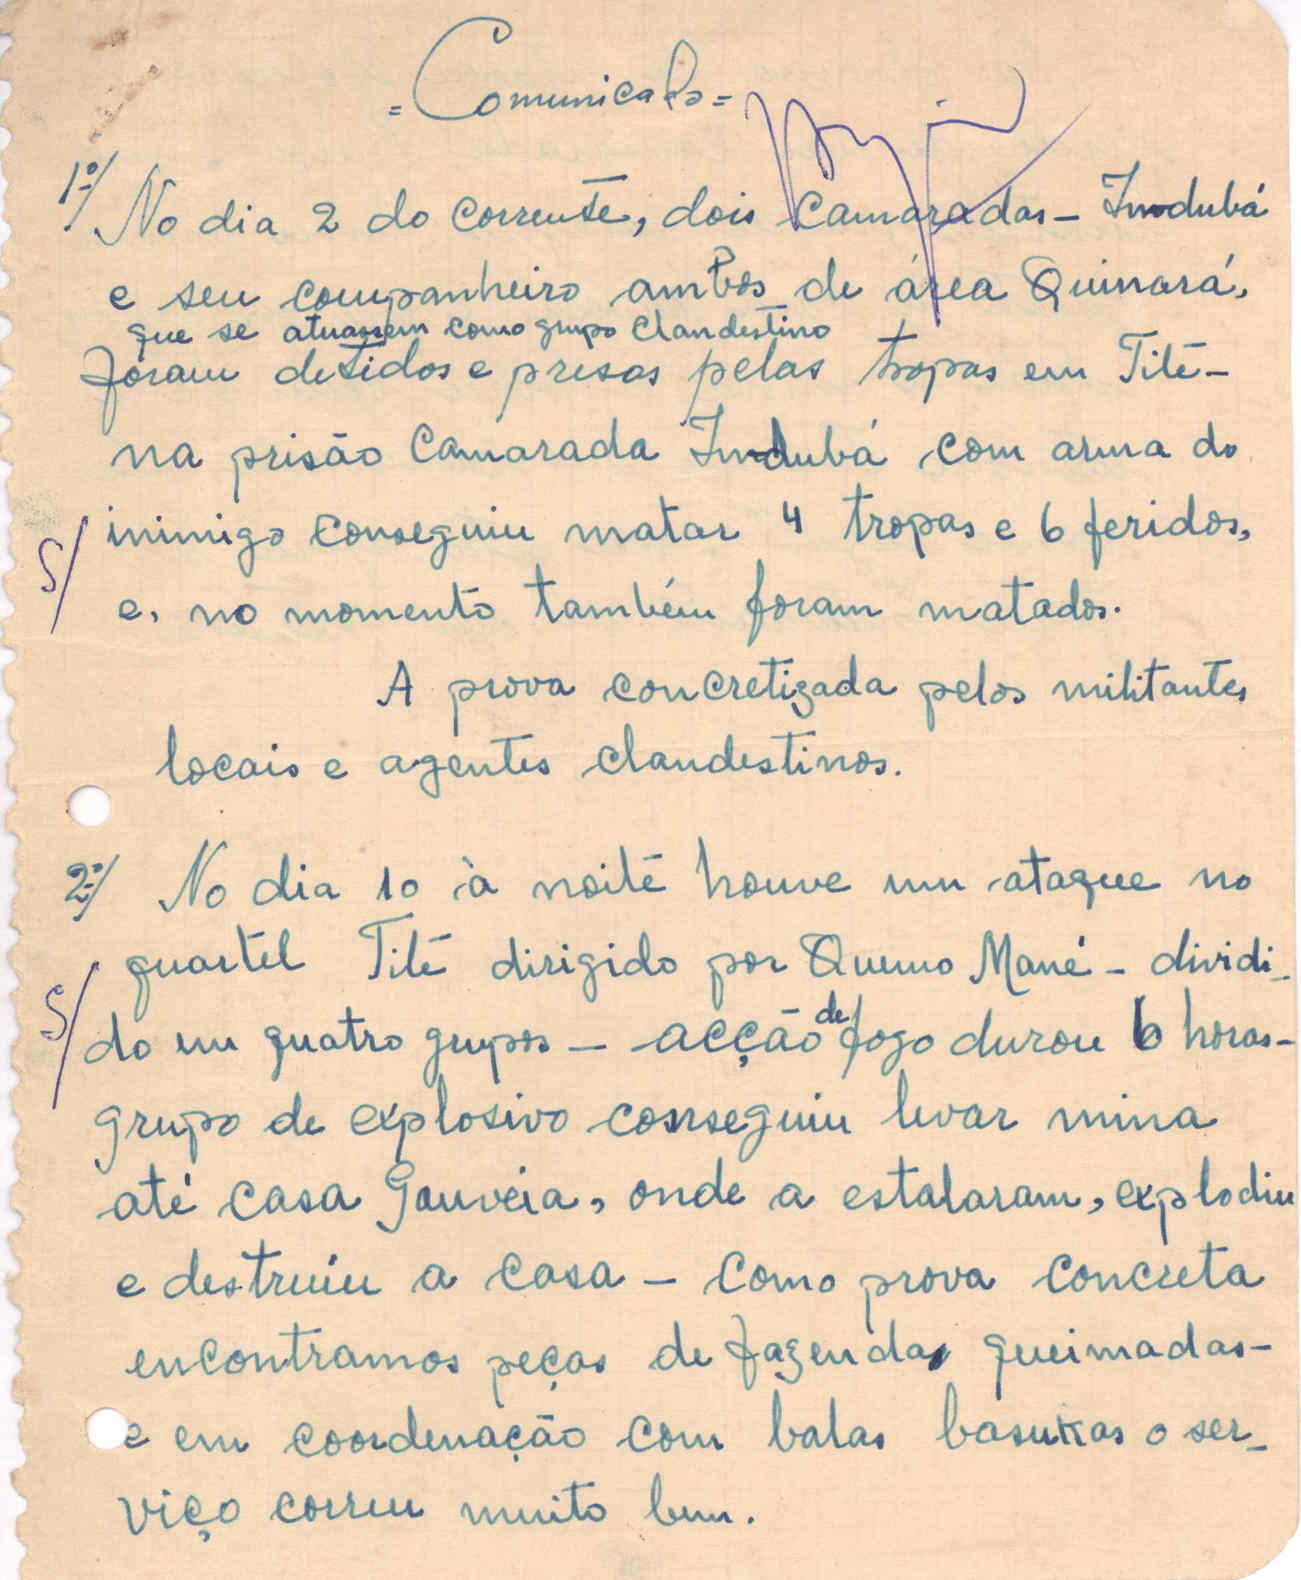 = Comunicado =
1º/ No dia 2 do corrente, dois camaradas - Indubá
e seu companheiro ambos de área Quinará,
que se atuassem como grupo clandestino
foram detidos e presos pelas tropas em Tite -
na prisão Camarada Indubá com arma do
inimigo conseguiu matar 4 tropas e 6 feridos,
S/
e, no momento também foram matados.
A prova concretizada pelos militantes
locais e agentes clandestinos.
2º/ No dia 10 à noite houve um ataque no
quartel Tite dirigido por Quemo Mané - dividi-
S/
do em quatro grupos - acção de fogo durou 6 horas -
grupo de explosivo conseguiu levar mina
até casa Gouveia, onde a estalaram, explodiu
e destruiu a casa - como prova concreta
encontramos peças de fazendas queimadas -
e em coordenação com balas basukas o ser-
viço correu muito bem.